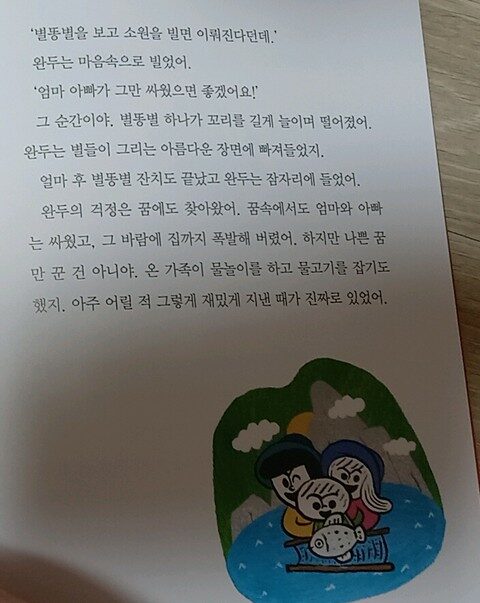 ‘별똥별을 보고 소원을 빌면 이뤄진다던데.’
완두는 마음속으로 빌었어.
‘엄마 아빠가 그만 싸웠으면 좋겠어요!’
그 순간이야. 별똥별 하나가 꼬리를 길게 늘이며 떨어졌어.
완두는 별들이 그리는 아름다운 장면에 빠져들었지.
얼마 후 별똥별 잔치도 끝났고 완두는 잠자리에 들었어.
완두의 걱정은 꿈에도 찾아왔어. 꿈속에서도 엄마와 아빠
는 싸웠고, 그 바람에 집까지 폭발해 버렸어. 하지만 나쁜 꿈
만 꾼 건 아니야. 온 가족이 물놀이를 하고 물고기를 잡기도
했지. 아주 어릴 적 그렇게 재밌게 지낸 때가 진짜로 있었어.